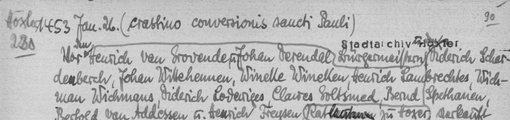 Höxter 1453 Jan. 26. (crastino conversionis sancti Pauli) 30
280
Stadtarchiv Höxter
Vor den Henrich van Brovenden, Johan Derendal Bürgermeistern, Diderich Schar-
denberch, Johan Wittehennen, Winelke Winelken Henrich Lambrechtes, Wich-
man Wichmans Diderich Lodewiges Clawes Goltsmed, Bernd Spethanen,
Bertold van Addessen u. Henrich Freysen Ratlustuwen zu Hoxer verkauft